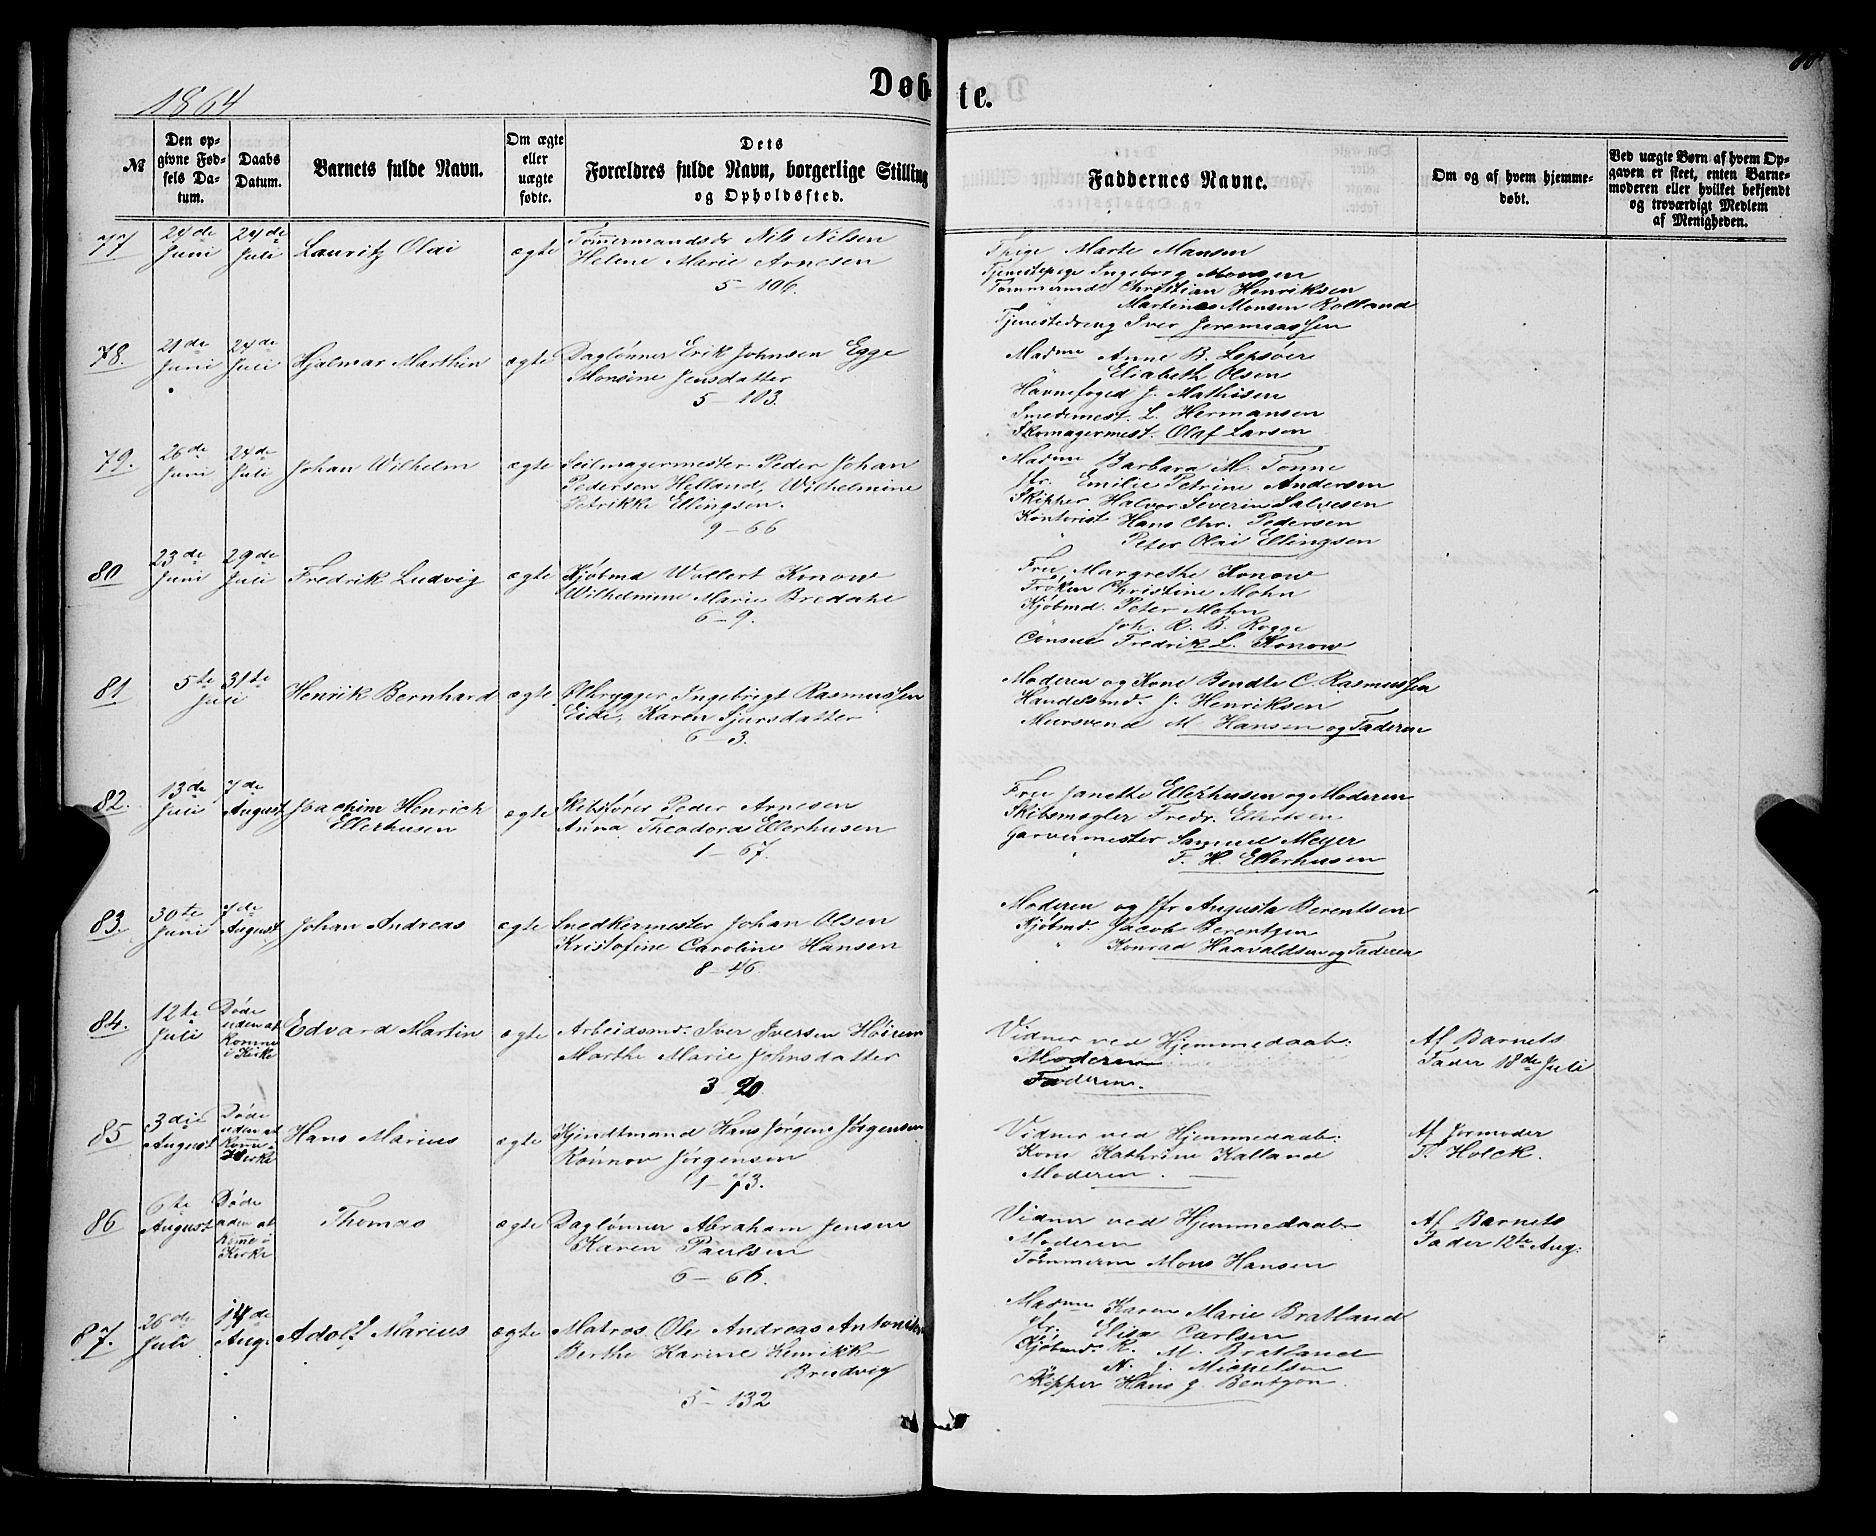 1864
Døbte.
№
Den opgivne Fødsels Datum.
Daabs Datum.
Barnets fulde Navn.
Om ægte eller uægte fødte.
Dets Forældres fulde Navn, borgerlige Stilling og Opholdssted.
Faddernes Navne.
Om og af hvem hjemmedøbt.
Ved uægte Børn af hvem Opgaven er skeet, enten Barnemoderen eller hvilket bekjendt og troværdigt Medlem af Menigheden.
77 24de Juni 24de Juli Lauritz Olai ægte
Tømermandsdr Nils Nilsen
Helene Marie Arnesen
5-106.
Pige Marte Mansen
Tjenestepige Ingeborg Monsen
Tømmermd. Christian Henriksen
" Martines Monsen Rolland
Tjenestedreng Iver Jeremiassen
78. 21de Juni 24de Juli Hjalmar Marthin ægte
Daglønner Erik Johnsen Egge
Monsine Jensdatter
5-103.
Madme Anne B. Lepsøer
" Elisabeth Olsen
Havnefoged J. Mathisen
Smedemest. L. Hermansen
Skomagermest. Olaf Larsen
79. 26de Juni 24de Juli Johan Wilhelm ægte
Seilmagermester Peder Johan
Pedersen Helland, Wilhelmine
Petrikke Ellingsen.
9-66
Madme Barbara M. Tonne
Jfr. Emilie Petrine Andersen
Skipper Halvor Severin Salvesen
Kontorist Hans Chr. Pedersen
" Peter Olai Ellingsen
80 23de Juni 29de Juli Fredrik Ludvig ægte
Kjøbmd Wollert Konow
Wilhelmine Marie Bredahl
6-9.
Fru Margrethe Konow
Frøken Christine Mohn
Kjøbmd. Peter Mohn
Joh. R. B. Rogge
Consul Fredrik L. Konow
81 5te Juli 31te Juli Henrik Bernhard ægte
Ølbrygger Ingebrigt Rasmussen
Eide, Karen Sjursdatter
6-3.
Moderen og Kone Bendte C. Rasmussen
Handelsmd. J. Henriksen
Mursvend M. Hansen og Faderen
82. 13de Juli 7de August Joachim Henrich
Ellerhusen ægte
Skibsfører Peder Arnesen
Anna Theodora Ellerhusen
1-67.
Fru Janette Ellerhusen og Moderen
Skibsmægler Fredr. Ellertsen
Garvermester Samuel Meyer
" F. H. Ellerhusen
83. 30te Juni 7de August Johan Andreas ægte
Snedkermester Johan Olsen
Kristofine Caroline Hansen
8-46.
Moderen og Jfr Augusta Berentsen
Kjøbmd. Jacob Berentzen
" Konrad Haavaldsen og Faderen
84. 12te Juli Døde uden at komme i Kirke Edvard Martin ægte
Arbeidsmd. Iver Iversen Høirem
Marthe Marie Johnsdatter
3 20.
Vidner ved Hjemmedaab:
Moderen
Faderen.
Af Barnets
Fader 18de Juli
85 3die August Døde uden at komme i Kirke Hans Marius ægte
Kjøndtmand Hans Jørgens Jørgensen
Rønnov Jørgensen
1-73.
Vidner ved Hjemmedaab:
Kone Kathrine Kalland
Moderen.
Af Jormoder
F. Holck.
86 6te August Døde uden at komme i Kirke Thomas ægte
Daglønner Abraham Jensen
Karen Paulsen
6-66.
Vidner ved Hjemmedaab
Moderen
Tømmerm Mons Hansen
Af Barnets
Fader 12te Aug:
87. 26de Juli 14de Aug: Adolf Marius ægte
Matros Ole Andreas Antonisen
Berthe Karine Henrikk
Bredvig
5-132
Madme Karen Marie Bratland
Jfr. Elisa Carlsen
Kjøbmd. R. M. Bratland
" N. J. Michelsen
Skipper Hans J. Bentzon.